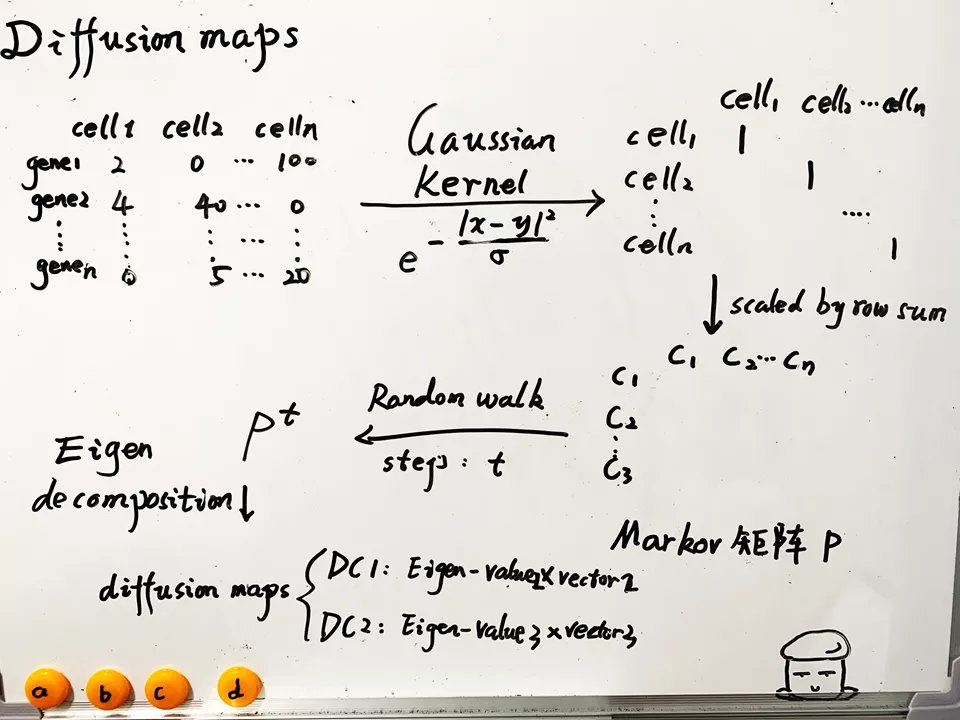 Diffusion maps
cell1 cell2 celln
gene1 2 0 ... 100
gene2 4 40 ... 0
⋮ ⋮ ⋮ ... ⋮
genen 0 5 ... 20
Gaussian
Kernel
e^{-|x-y|²/σ}
cell1 cell2 ... celln
cell1 1
cell2 1
⋮ ....
celln 1
scaled by row sum
C1 C2 ... Cn
C1
C2
⋮
C3
Markov 矩阵 P
Random walk
steps: t
P^t
Eigen
decomposition
diffusion maps
DC1: Eigen-value2 x vector2
DC2: Eigen-value3 x vector3
a b c d